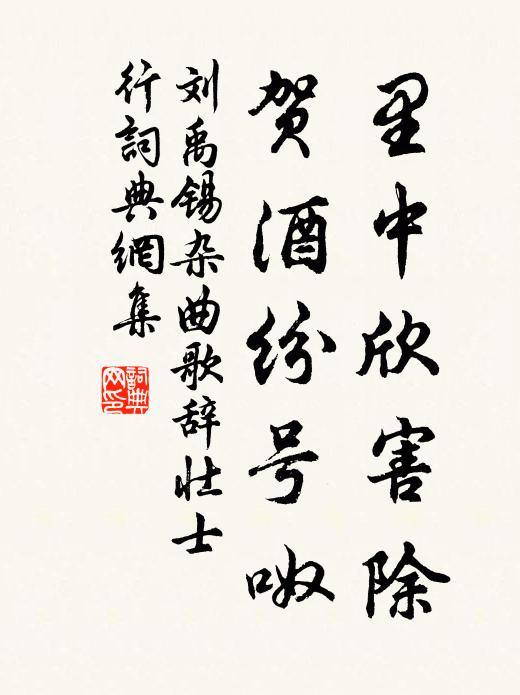 里中欣害除
贺酒纷号呶
刘禹锡杂曲歌辞壮士
行詞典網集
詞典网印